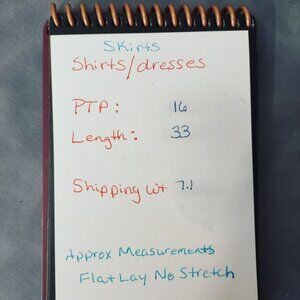 Skirts
Shirts/dresses
PTP: 16
Length: 33
Shipping wt 7.1
Approx Measurements
Flat Lay No Stretch